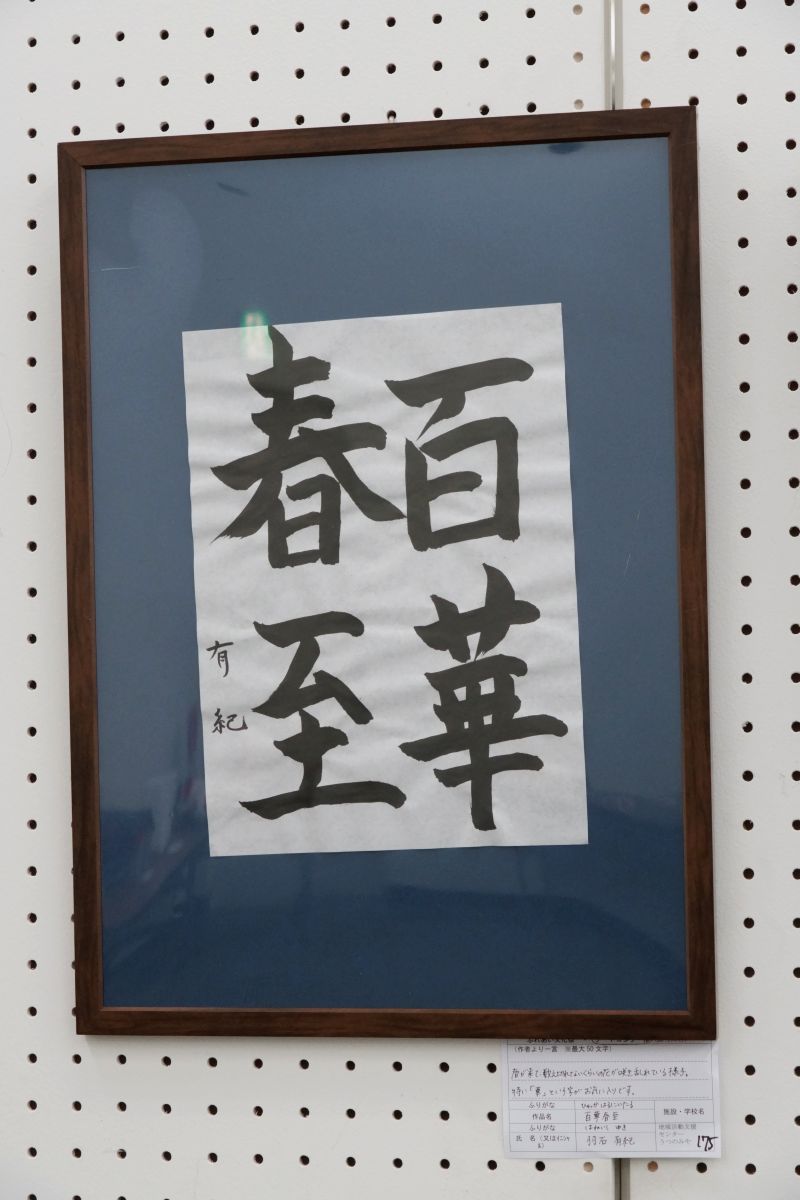 百華
春至
有紀
(作者より一言 ※最大50文字)
春が来て、数え切れないくらいの花が咲き乱れている様子。
特に「華」という字がお気に入りです。
ふりがな
ひゃっか はるにいたる
作品名
百華春至
施設・学校名
ふりがな
はねいし ゆき
氏 名 (又はイニシャル)
羽石 有紀
地域活動支援
センター
うつのみや
175